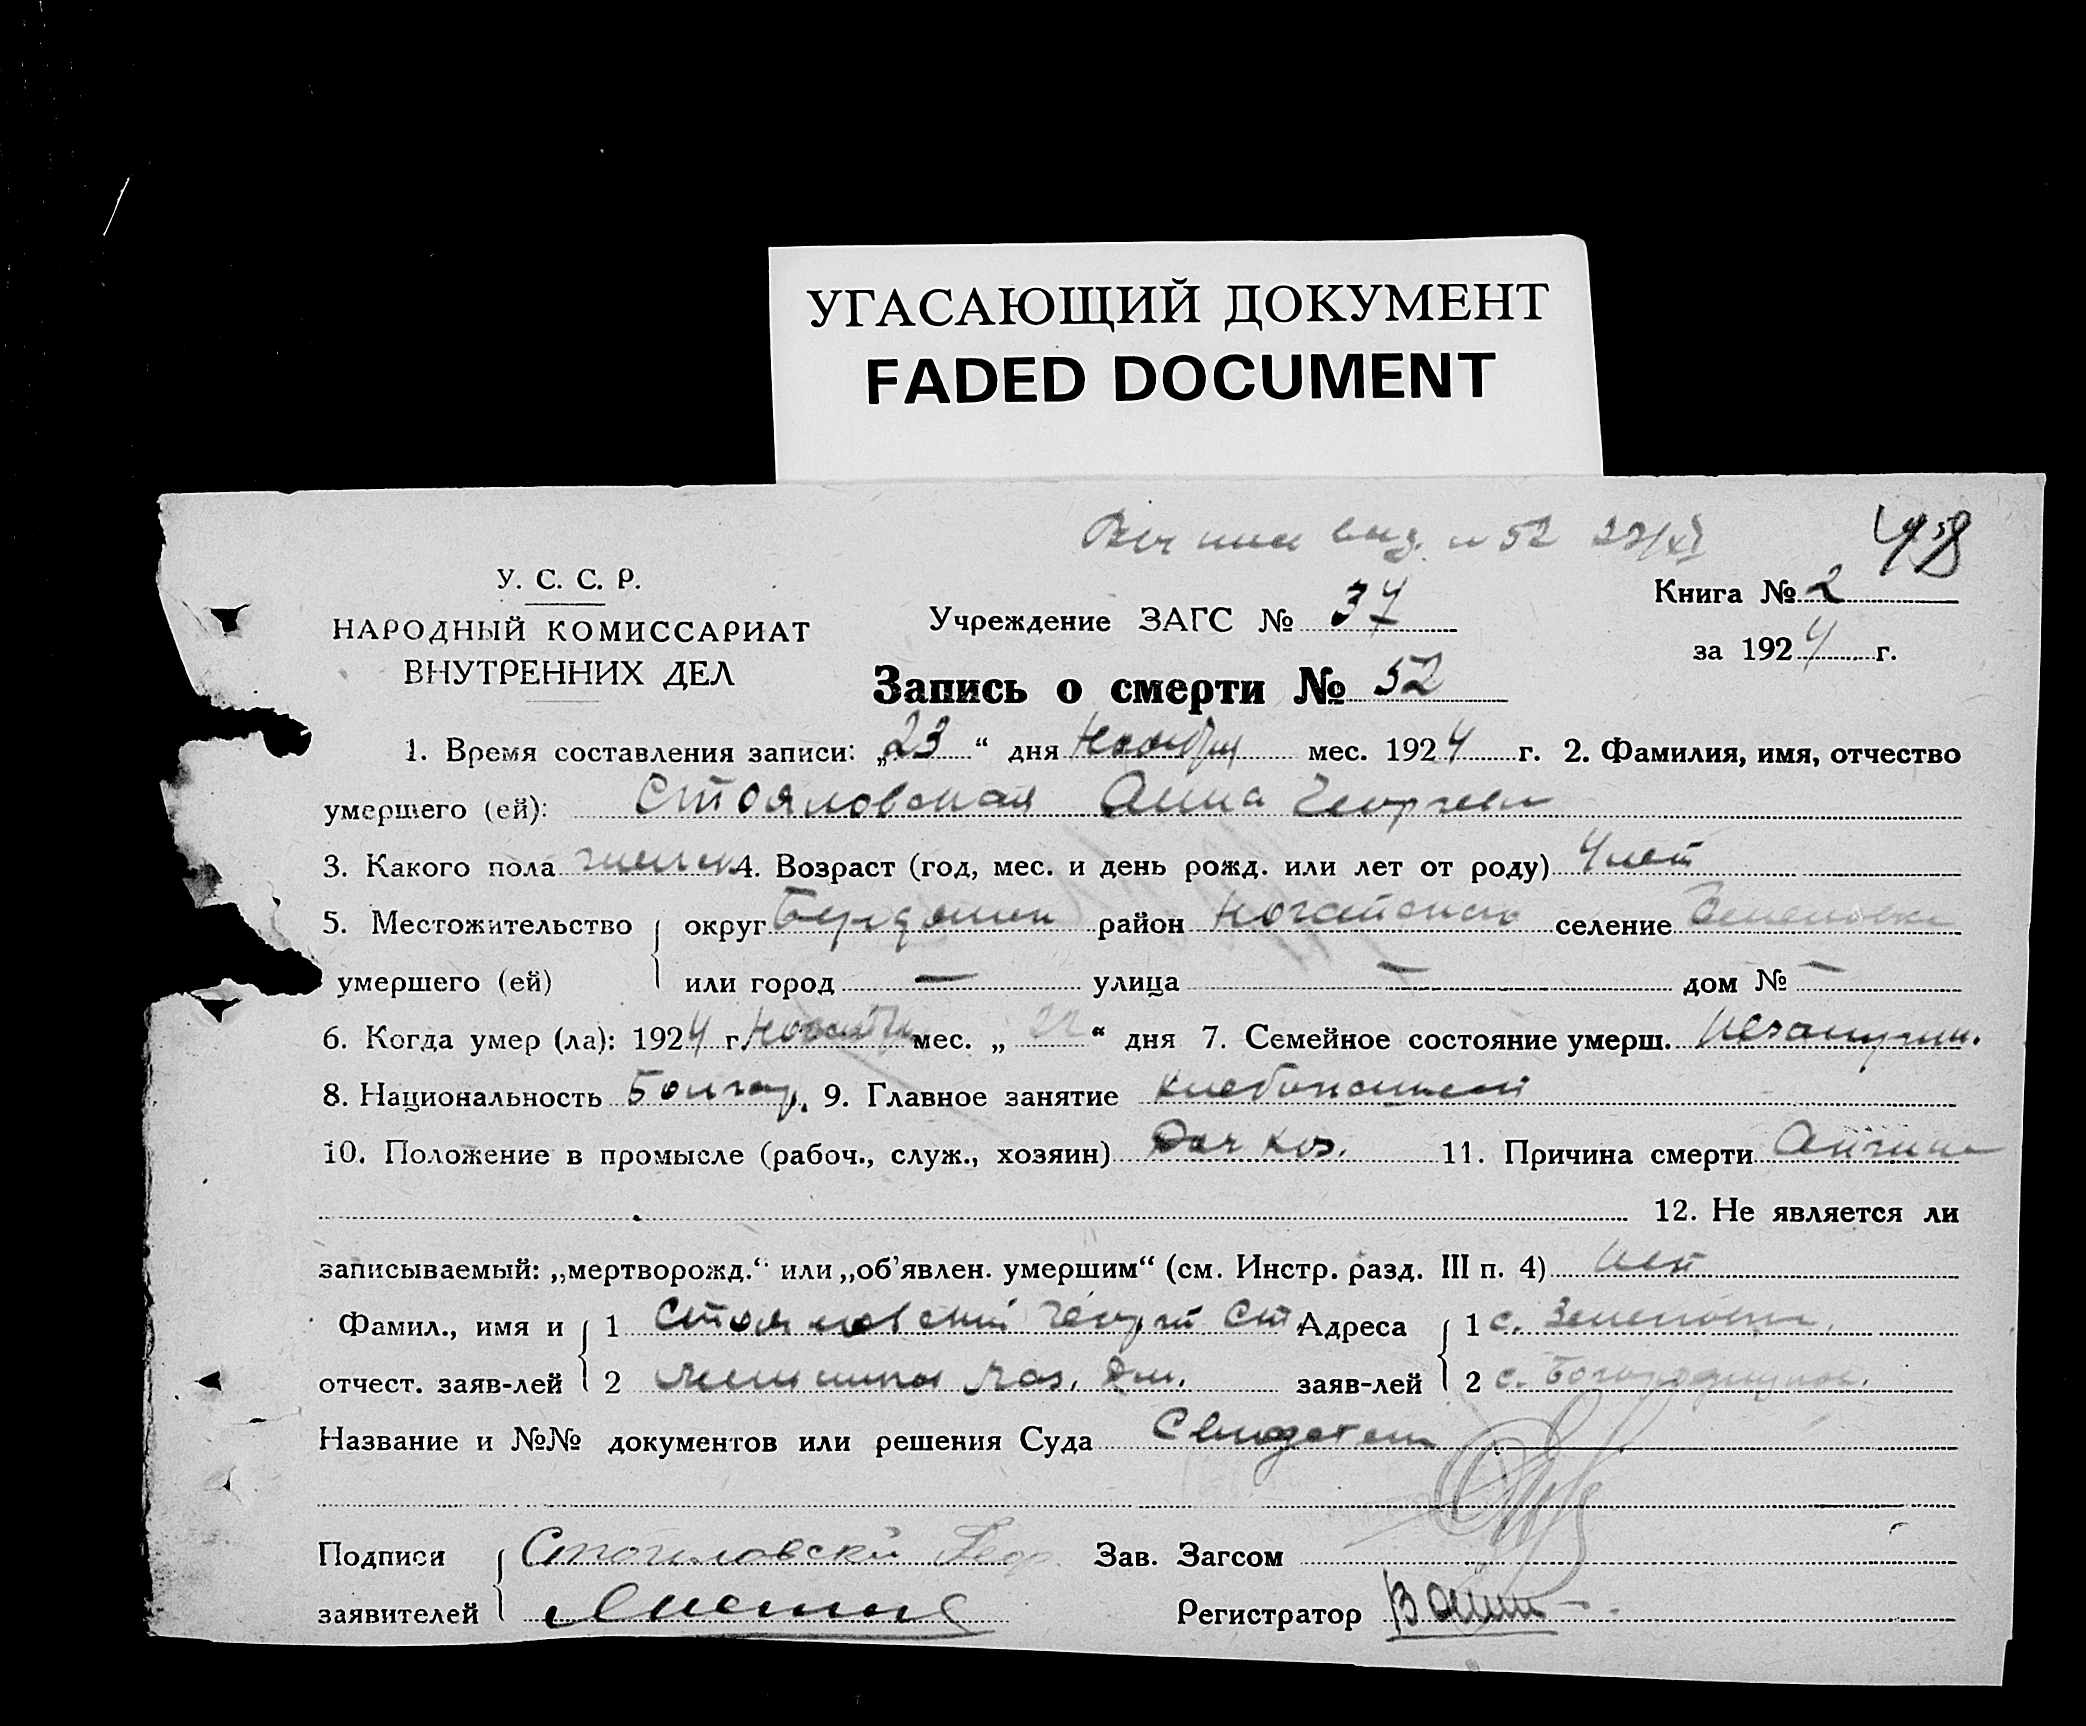 УГАСАЮЩИЙ ДОКУМЕНТ
FADED DOCUMENT
№ 52 23/XI
48
У. С. С. Р.
НАРОДНЫЙ КОМИССАРИАТ
ВНУТРЕННИХ ДЕЛ
Учреждение ЗАГС № 37
Книга № 2
за 1924 г.
Запись о смерти № 52
1. Время составления записи: „23“ дня Ноября мес. 1924 г. 2. Фамилия, имя, отчество
умершего (ей): Стояловская Анна Георгиев
3. Какого пола женск 4. Возраст (год, мес. и день рожд. или лет от роду) 4 лет
5. Местожительство округ Бердянск район Ногайский селение Зеленовка
умершего (ей) или город — улица — дом № —
6. Когда умер (ла): 1924 г. Ноября мес. „22“ дня 7. Семейное состояние умерш. Незамужн.
8. Национальность Болгар. 9. Главное занятие хлебопашест
10. Положение в промысле (рабоч., служ., хозяин) Доч хоз. 11. Причина смерти Ангина
12. Не является ли
записываемый: „мертворожд.“ или „об’явлен. умершим“ (см. Инстр. разд. III п. 4) нет
Фамил., имя и 1 Стояловский Георгий Ст Адреса 1 с. Зеленовка.
отчест. заяв-лей 2 заяв-лей 2 с.
Название и №№ документов или решения Суда Свидетели
Подписи Стояловски Геор Зав. Загсом
заявителей Регистратор